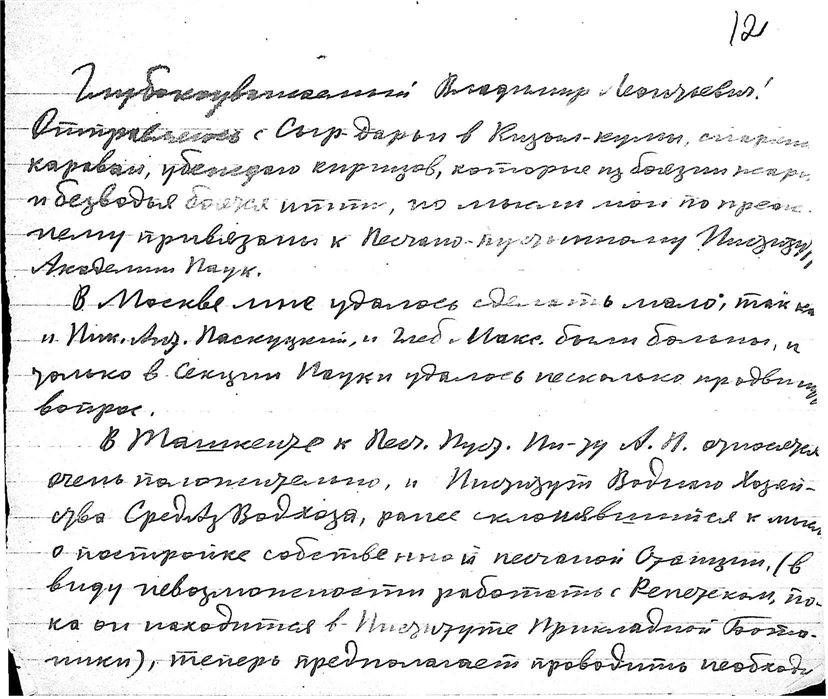 12
Глубокоуважаемый Владимир Леонтьевич!
Отправляясь с Сыр-Дарьи в Кизыл-кумы, снаряж
караван, убеждаю киргизов, которые из боязни жары
и безводья боятся итти, но мысли мои по преж-
нему привязаны к Песчано-пустынному Институту
Академии Наук.
В Москве мне удалось сделать мало, так как
и Ник. Ант. Паскуцкий, и Глеб. Макс. были больны, и
только в Секции Науки удалось несколько продвинуть
вопрос.
В Ташкенте к Песч. Пуст. Ин-ту А. Н. относятся
очень положительно, и Институт Водного Хозяй-
ства СредАзВодхоза, ранее склонявшийся к мысли
о постройке собственной песчаной Станции, (в
виду невозможности работать с Репетеком, по-
ка он находится в Институте Прикладной Бота-
ники), теперь предполагает проводить необходи